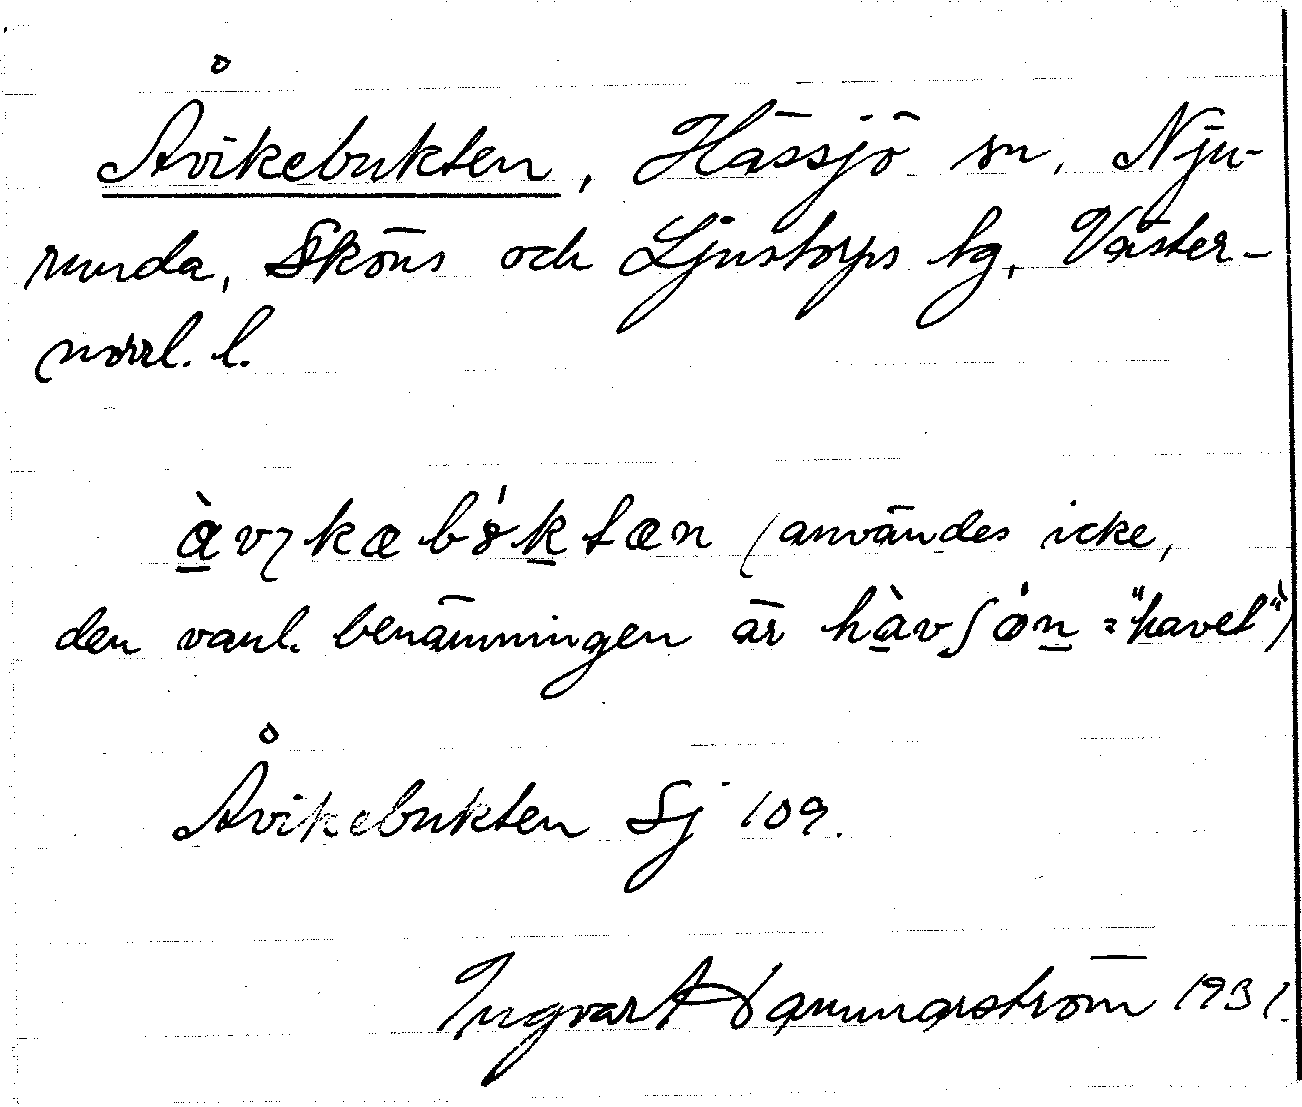 Åvikebukten, Hässjö sn, Nju-
runda, Sköns och Ljustorps tg, Väster-
norrl. l.
àvıkæbóktæn (användes icke,
den vanl. benämningen är hàvʃón = "havet")
Åvikebukten Sj 109.
Ingvar Hammarström 1931.